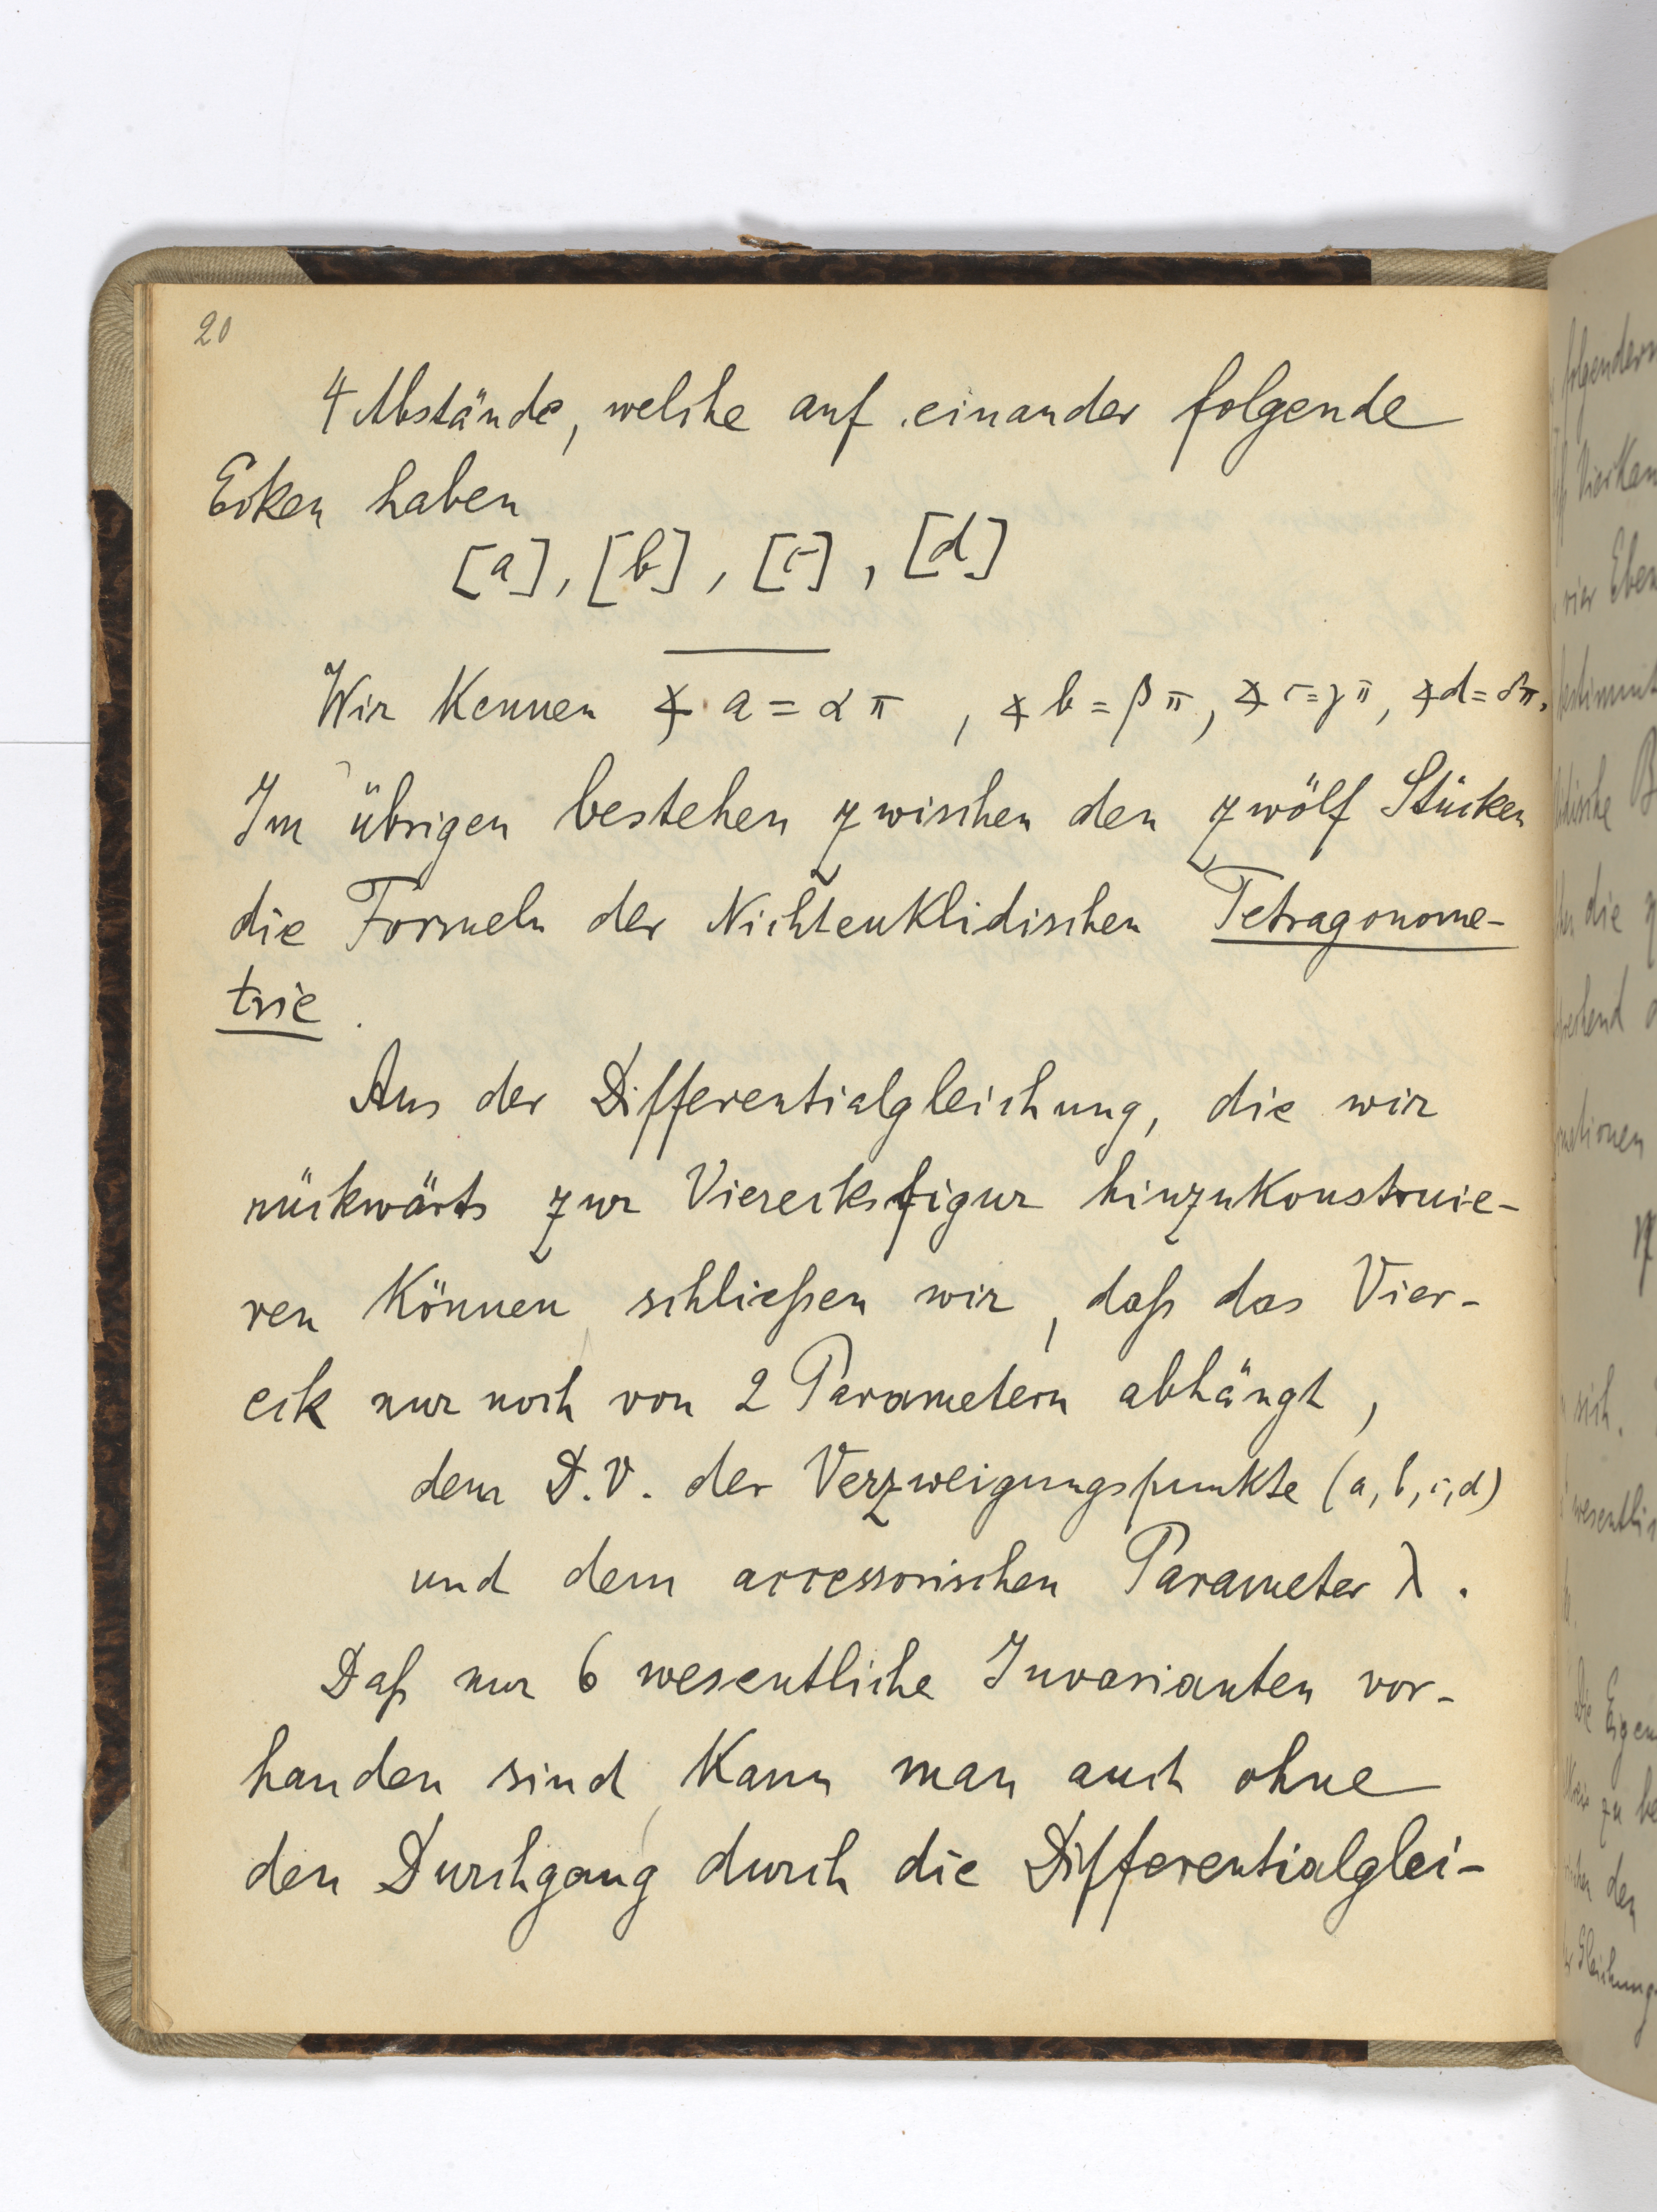 20
4 Abstände, welche auf einander folgende
Ecken haben
[a], [b], [c], [d]
Wir kennen ∢ a = α π , ∢ b = β π, ∢ c = γ π, ∢ d = δ π.
Im übrigen bestehen zwischen den zwölf Stücken
die Formeln der Nichteuklidischen Tetragonome-
trie.
Aus der Differentialgleichung, die wir
rückwärts zur Vierecksfigur hinzukonstruie-
ren können, schließen wir, daß das Vier-
eck nur noch von 2 Parametern abhängt,
dem D.V. der Verzweigungspunkte (a, b, c, d)
und dem accessorischen Parameter λ.
Daß nur 6 wesentliche Invarianten vor-
handen sind, kann man auch ohne
den Durchgang durch die Differentialglei-